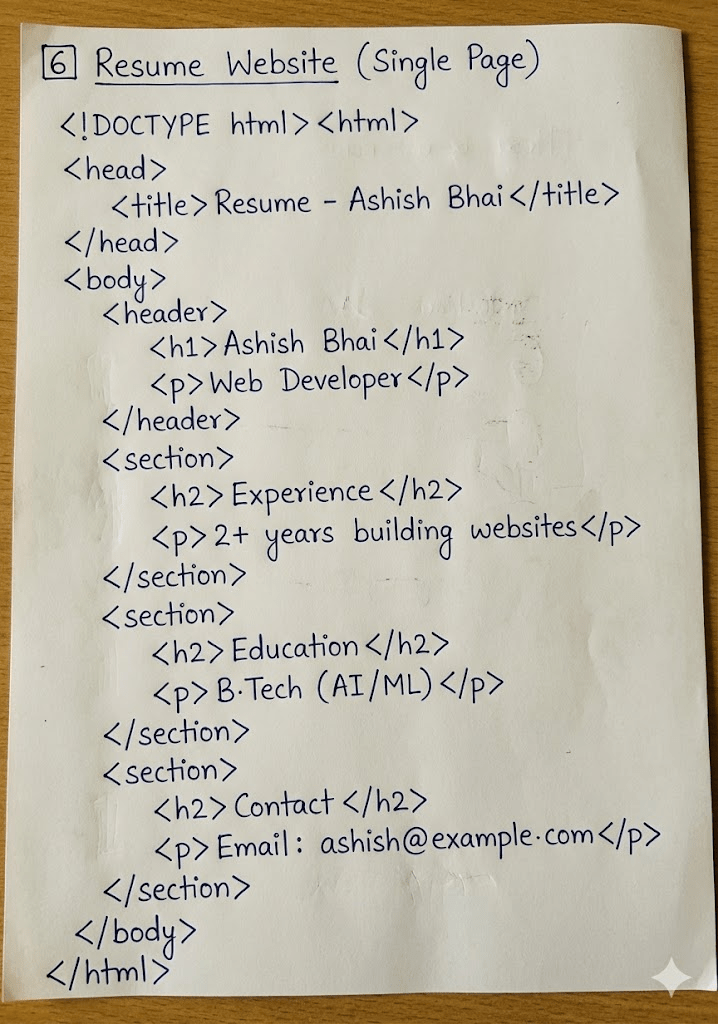 6 Resume Website (Single Page)
<!DOCTYPE html><html>
<head>
<title>Resume - Ashish Bhai</title>
</head>
<body>
<header>
<h1>Ashish Bhai</h1>
<p>Web Developer</p>
</header>
<section>
<h2>Experience</h2>
<p>2+ years building websites</p>
</section>
<section>
<h2>Education</h2>
<p>B.Tech (AI/ML)</p>
</section>
<section>
<h2>Contact</h2>
<p>Email: ashish@example.com</p>
</section>
</body>
</html>